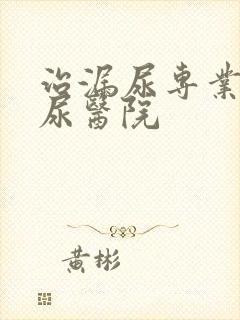 治漏尿専業
尿醫院
黃彬